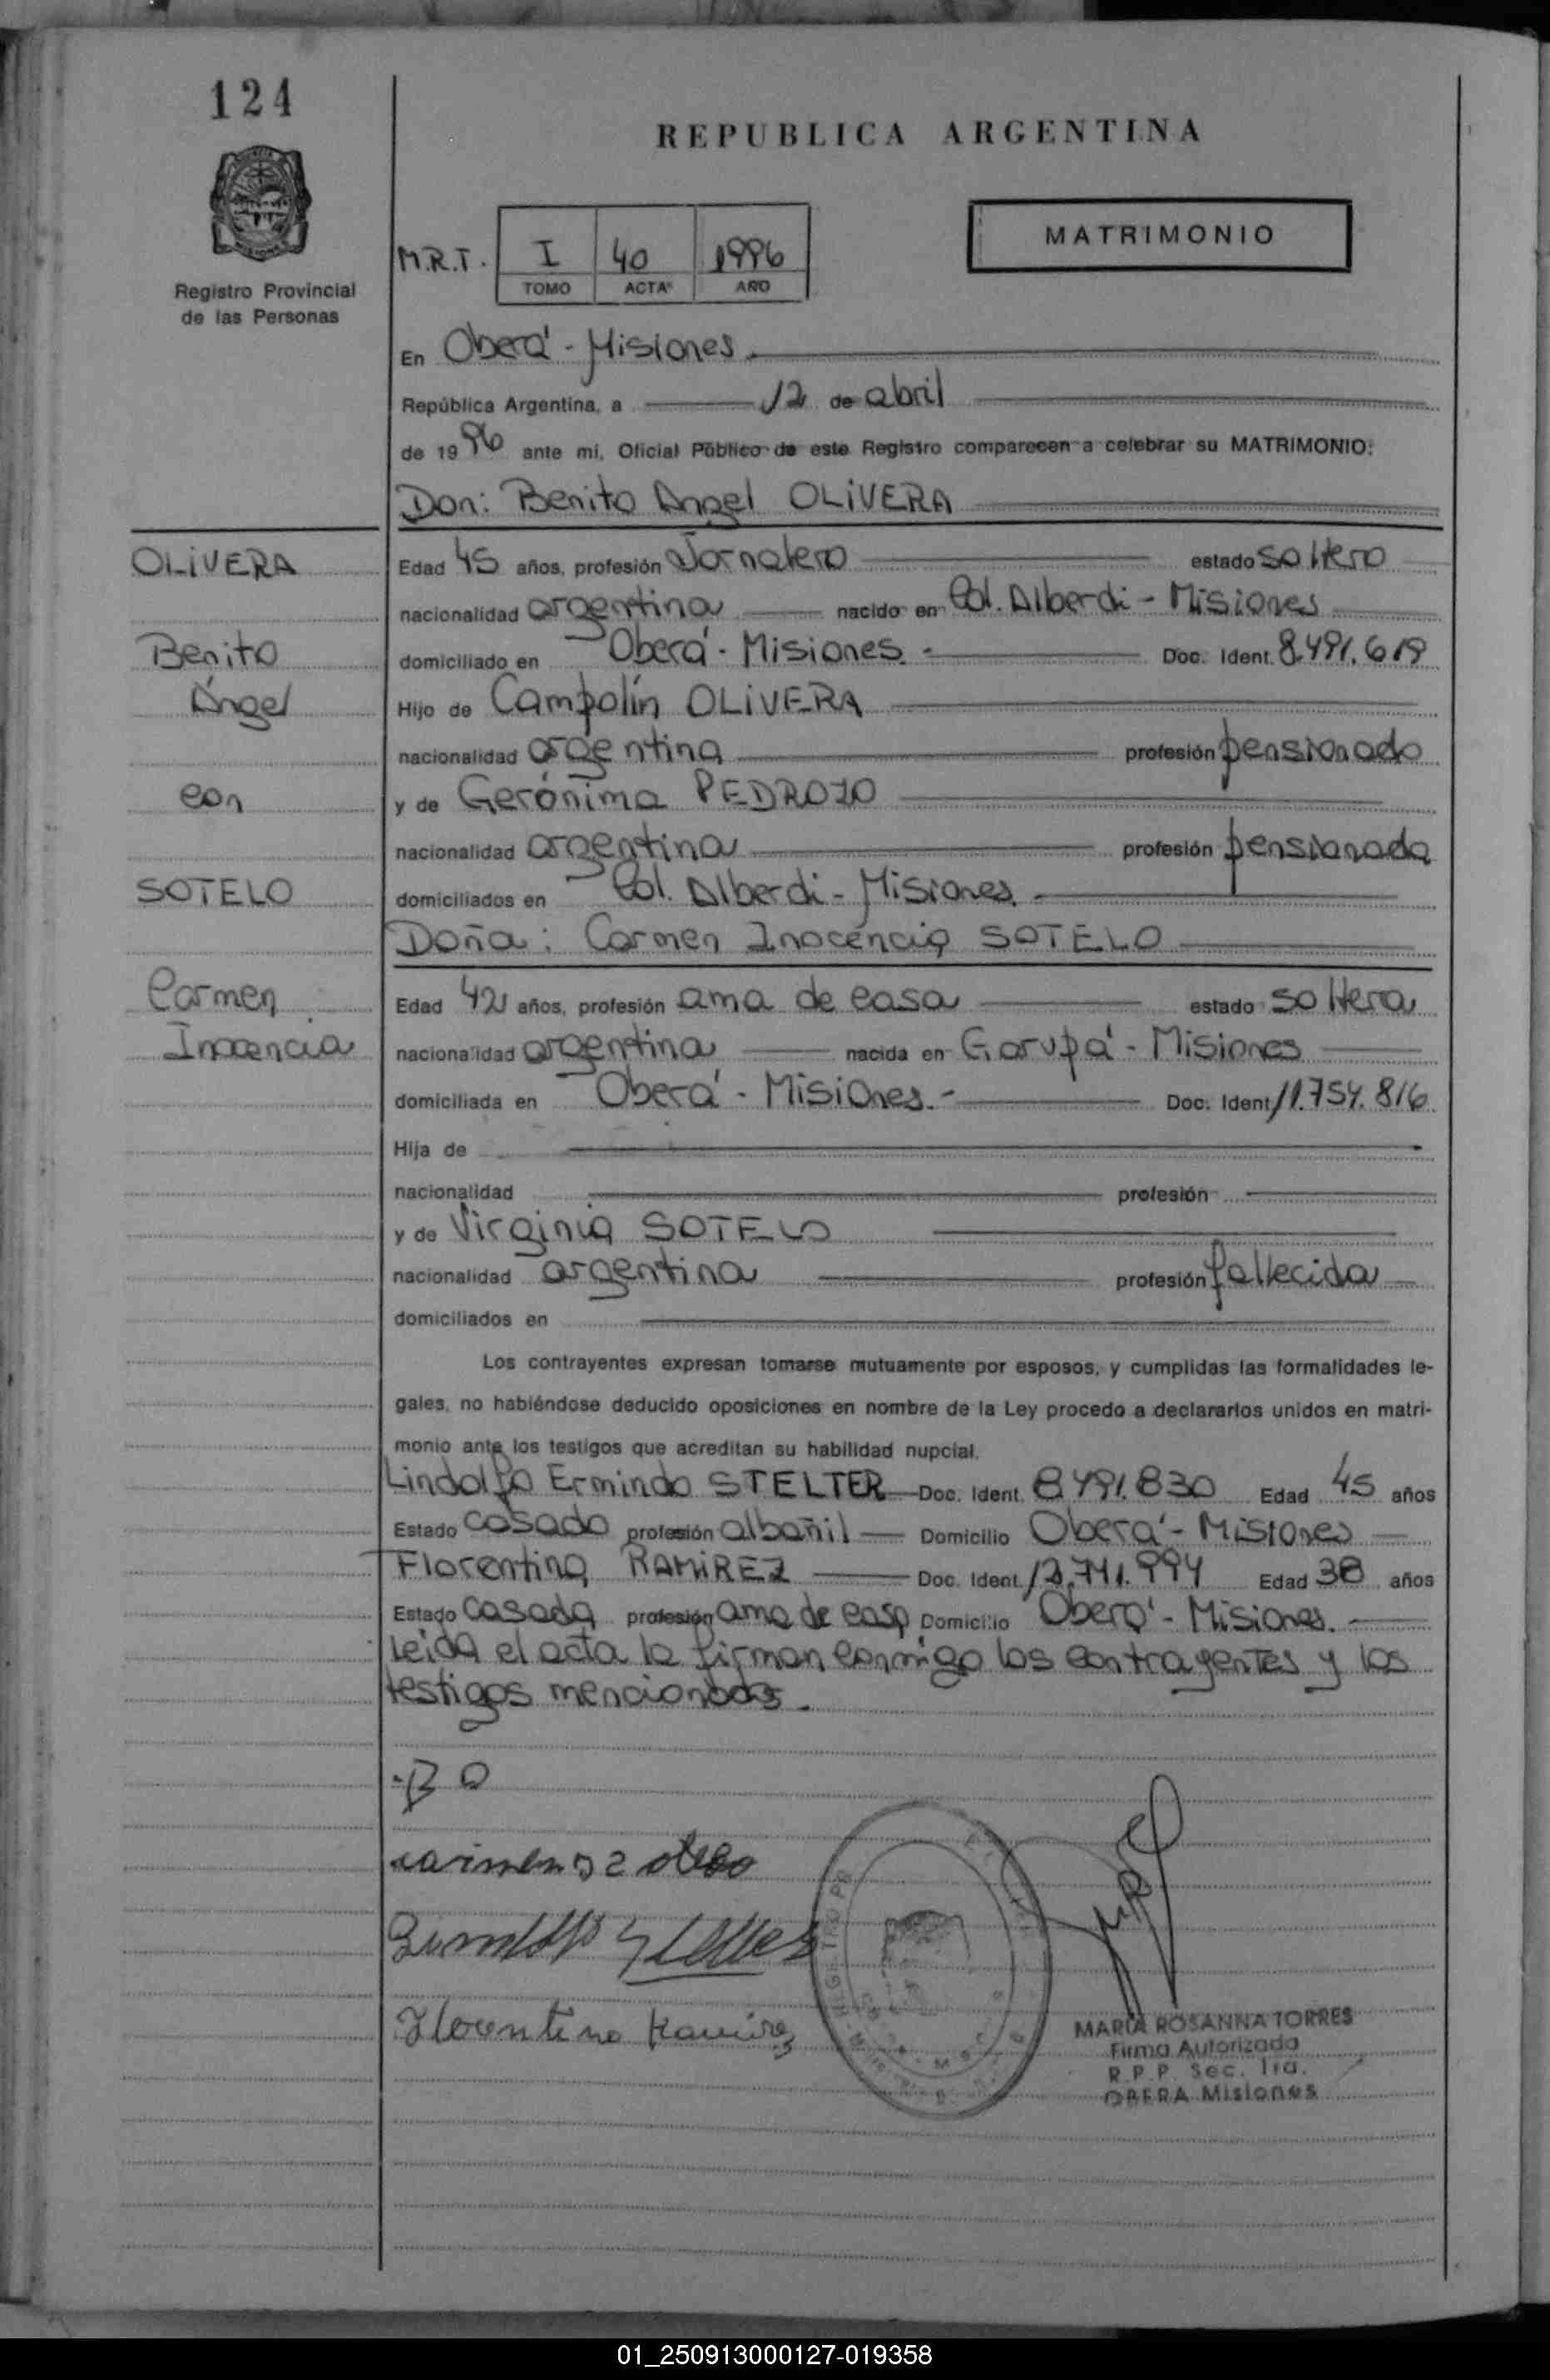 124
REPUBLICA ARGENTINA
Registro Provincial
de las Personas
M.R.T. I 40 1996
TOMO ACTA AÑO
MATRIMONIO
En Oberá - Misiones.
República Argentina, a 12 de abril
de 1996 ante mí, Oficial Público de este Registro comparecen a celebrar su MATRIMONIO:
Don: Benito Angel OLIVERA
OLIVERA
Benito
Ángel
con
SOTELO
Carmen
Inocencia
Edad 45 años, profesión Jornalero estado soltero
nacionalidad argentina nacido en Col. Alberdi - Misiones
domiciliado en Oberá - Misiones. - Doc. Ident. 8.491.619
Hijo de Campolín OLIVERA
nacionalidad argentina profesión pensionado
y de Gerónima PEDROZO
nacionalidad argentina profesión pensionada
domiciliados en Col. Alberdi - Misiones.
Doña: Carmen Inocencia SOTELO
Edad 42 años, profesión ama de casa estado soltera
nacionalidad argentina nacida en Garupá - Misiones
domiciliada en Oberá - Misiones. - Doc. Ident 11.754.816
Hija de
nacionalidad profesión
y de Virginia SOTELO
nacionalidad argentina profesión fallecida
domiciliados en
Los contrayentes expresan tomarse mutuamente por esposos, y cumplidas las formalidades le-
gales, no habiéndose deducido oposiciones en nombre de la Ley procedo a declararlos unidos en matri-
monio ante los testigos que acreditan su habilidad nupcial.
Lindolfo Ermindo STELTER Doc. Ident. 8.491.830 Edad 45 años
Estado casado profesión albañil Domicilio Oberá - Misiones
Florentina RAMIREZ Doc. Ident. 12.741.994 Edad 38 años
Estado casada profesión ama de casa Domicilio Oberá - Misiones.
Leida el acta la firman conmigo los contrayentes y los
testigos mencionados.
B O
Florentina Ramirez
MARIA ROSANNA TORRES
Firma Autorizada
R.P.P. Sec. 1ra.
OBERA Misiones
01_250913000127-019358